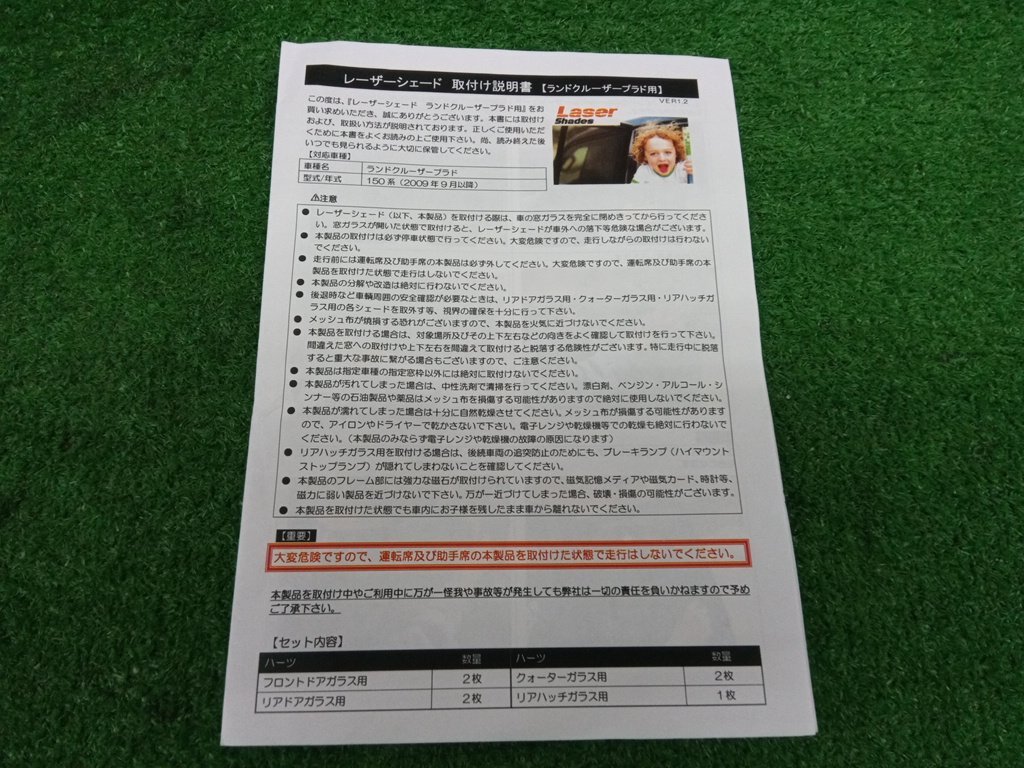 レーザーシェード 取付け説明書 【ランドクルーザープラド用】
VER1.2
この度は、『レーザーシェード ランドクルーザープラド用』をお
買い求めいただき、誠にありがとうございます。本書には取付け
および、取扱い方法が説明されております。正しくご使用いただ
くために本書をよくお読みの上ご使用下さい。尚、読み終えた後
いつでも見られるように大切に保管してください。
Laser
Shades
【対応車種】
車種名 ランドクルーザープラド
型式/年式 150系(2009年9月以降)
⚠注意
● レーザーシェード(以下、本製品)を取付ける際は、車の窓ガラスを完全に閉めきってから行ってくださ
い。窓ガラスが開いた状態で取付けると、レーザーシェードが車外への落下等危険な場合がございます。
● 本製品の取付けは必ず停車状態で行ってください。大変危険ですので、走行しながらの取付けは行わない
でください。
● 走行前には運転席及び助手席の本製品は必ず外してください。大変危険ですので、運転席及び助手席の本
製品を取付けた状態で走行はしないでください。
● 本製品の分解や改造は絶対に行わないでください。
● 後退時など車輌周囲の安全確認が必要なときは、リアドアガラス用・クォーターガラス用・リアハッチガ
ラス用の各シェードを取外す等、視界の確保を十分に行って下さい。
● メッシュ布が焼損する恐れがございますので、本製品を火気に近づけないでください。
● 本製品を取付ける場合は、対象場所及びその上下左右などの向きをよく確認して取付けを行って下さい。
間違えた窓への取付けや上下左右を間違えて取付けると脱落する危険性がございます。特に走行中に脱落
すると重大な事故に繋がる場合もございますので、ご注意ください。
● 本製品は指定車種の指定窓枠以外には絶対に取付けないでください。
● 本製品が汚れてしまった場合は、中性洗剤で清掃を行ってください。漂白剤、ベンジン・アルコール・シ
ンナー等の石油製品や薬品はメッシュ布を損傷する可能性がありますので絶対に使用しないでください。
● 本製品が濡れてしまった場合は十分に自然乾燥させてください。メッシュ布が損傷する可能性があります
ので、アイロンやドライヤーで乾かさないで下さい。電子レンジや乾燥機等での乾燥も絶対に行わないで
ください。(本製品のみならず電子レンジや乾燥機の故障の原因になります)
● リアハッチガラス用を取付ける場合は、後続車両の追突防止のためにも、ブレーキランプ(ハイマウント
ストップランプ)が隠れてしまわないことを確認してください。
● 本製品のフレーム部には強力な磁石が取付けられていますので、磁気記憶メディアや磁気カード、時計等、
磁力に弱い製品を近づけないで下さい。万が一近づけてしまった場合、破壊・損傷の可能性がございます。
● 本製品を取付けた状態でも車内にお子様を残したまま車から離れないでください。
【重要】
大変危険ですので、運転席及び助手席の本製品を取付けた状態で走行はしないでください。
本製品を取付け中やご利用中に万が一怪我や事故等が発生しても弊社は一切の責任を負いかねますので予め
ご了承下さい。
【セット内容】
パーツ 数量 パーツ 数量
フロントドアガラス用 2枚 クォーターガラス用 2枚
リアドアガラス用 2枚 リアハッチガラス用 1枚